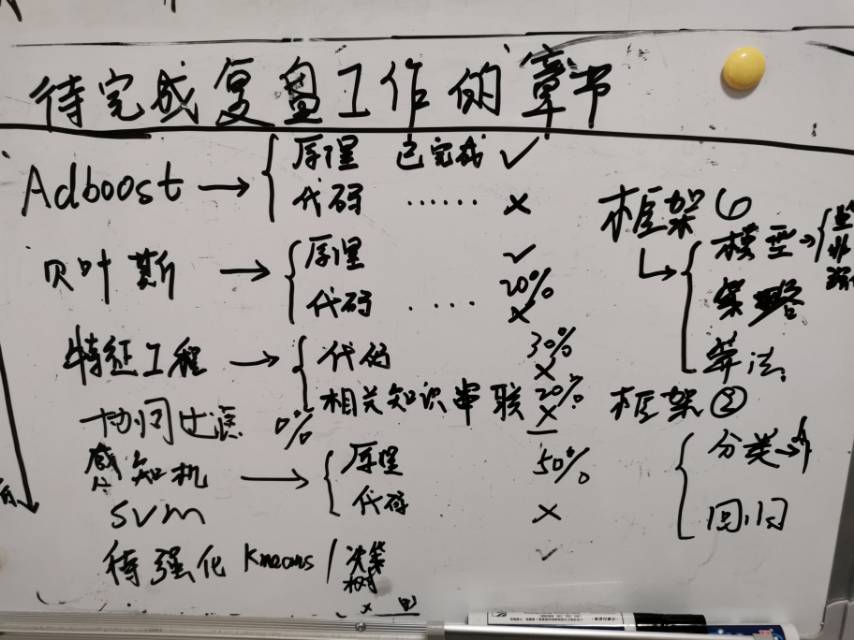 待完成复盘工作的章节
Adboost → 原理 已完成 ✓
代码 ...... ×
贝叶斯 → 原理 ✓
代码 .... 20% ×
特征工程 → 代码 30% ×
相关知识串联 20% ×
协同过滤 0%
感知机 → 原理 50%
代码 ×
SVM
待强化 Kmeans / 决策树 ✓
框架①
模型 →
策略
算法
框架②
分类 →
回归